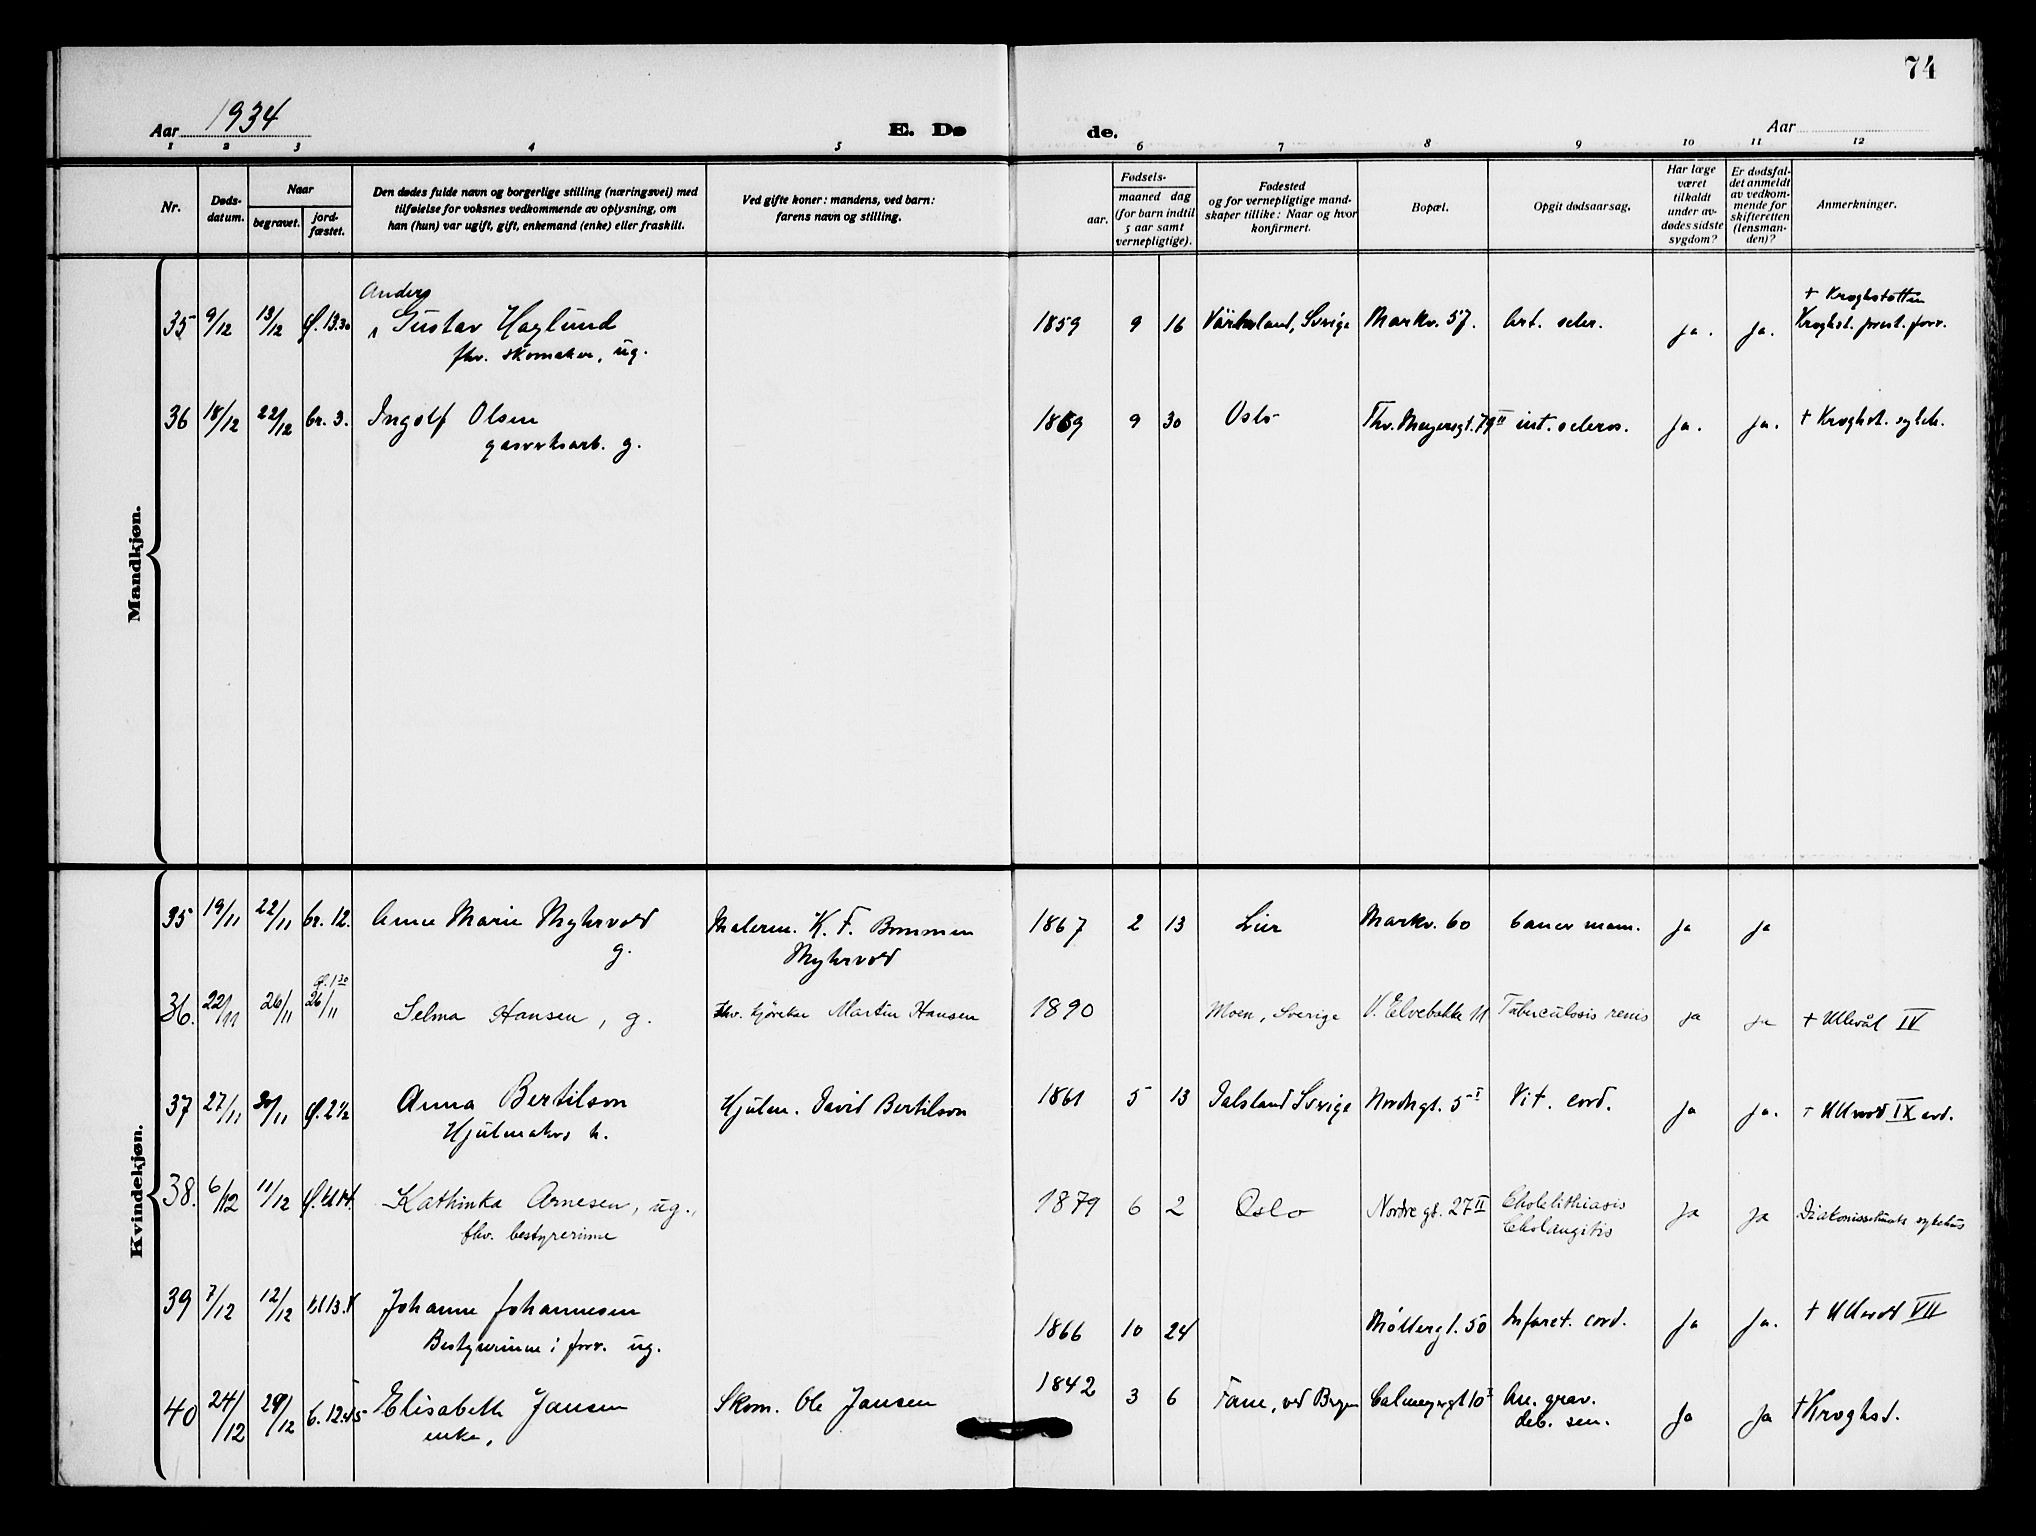 74
Aar 1934
E. Dø
de.
Aar
1 2 3 4 5 6 7 8 9 10 11 12
Nr.
Døds-
datum.
Naar
begravet.
jord-
fæstet.
Den dødes fulde navn og borgerlige stilling (næringsvei) med
tilføielse for voksnes vedkommende av oplysning, om
han (hun) var ugift, gift, enkemand (enke) eller fraskilt.
Ved gifte koner: mandens, ved barn:
farens navn og stilling.
Fødsels-
aar.
maaned dag
(for barn indtil
5 aar samt
vernepligtige).
Fødested
og for vernepligtige mand-
skaper tillike: Naar og hvor
konfirmert.
Bopæl.
Opgit dødsaarsag.
Har læge
været
tilkaldt
under av-
dødes sidste
sygdom?
Er dødsfal-
det anmeldt
av vedkom-
mende for
skifteretten
(lensman-
den)?
Anmerkninger.
Mandkjøn.
Anders
35 9/12 13/12 13.30 Gustav Haglund 1859 9 16 Sverige Markv. 57. Art. scler. ja. ja. + Kroghstøtten
fhv. skomaker, ug.
36 18/12 22/12 br. 3. Ingolf Olsen 1869 9 30 Oslo Thv. Meyersgt. 79 II scleros. ja. ja. + Kroghst. sykeh.
gasverksarb. g.
Kvindekjøn.
35 19/11 22/11 br. 12. Anne Marie Myhrvold Malerm. K. F. Bommen 1867 2 13 Lier Markv. 60 Cancer mam. ja ja
g. Myhrvold
36. 22/11 26/11 26/11 Selma Hansen, g. fhv. kjørekar Martin Hansen 1890 Moen, Sverige V. Elvebakke 11 Tuberculosis renis ja ja + Ullevål IV
37 27/11 30/11 2 1/2 Anna Bertilson Hjulm. David Bertilson 1861 5 13 Dalsland Sverige Nordregt. 5 I Vit. cord. ja ja. + Ullevål IX avd.
Hjulmakers h.
38. 6/12 11/12 Kathinka Arnesen, ug., 1879 6 2 Oslo Nordre gt. 27 II Cholelithiasis ja ja Diakonissehusets sykehus
fhv. bestyrerinne Cholangitis
39 7/12 12/12 Johanne Johannesen 1866 10 24 Møllergt. 50 Infarct. cord. ja ja. + Ullevål VII
Bestyrerinne i forr. ug.
40 24/12 29/12 b. 12.45 Elisabeth Jansen Skom. Ole Jansen 1842 3 6 Fane, ved Bergen Calmeyersgt 10 I An. grav. ja ja + Kroghst.
enke, deb. sen.